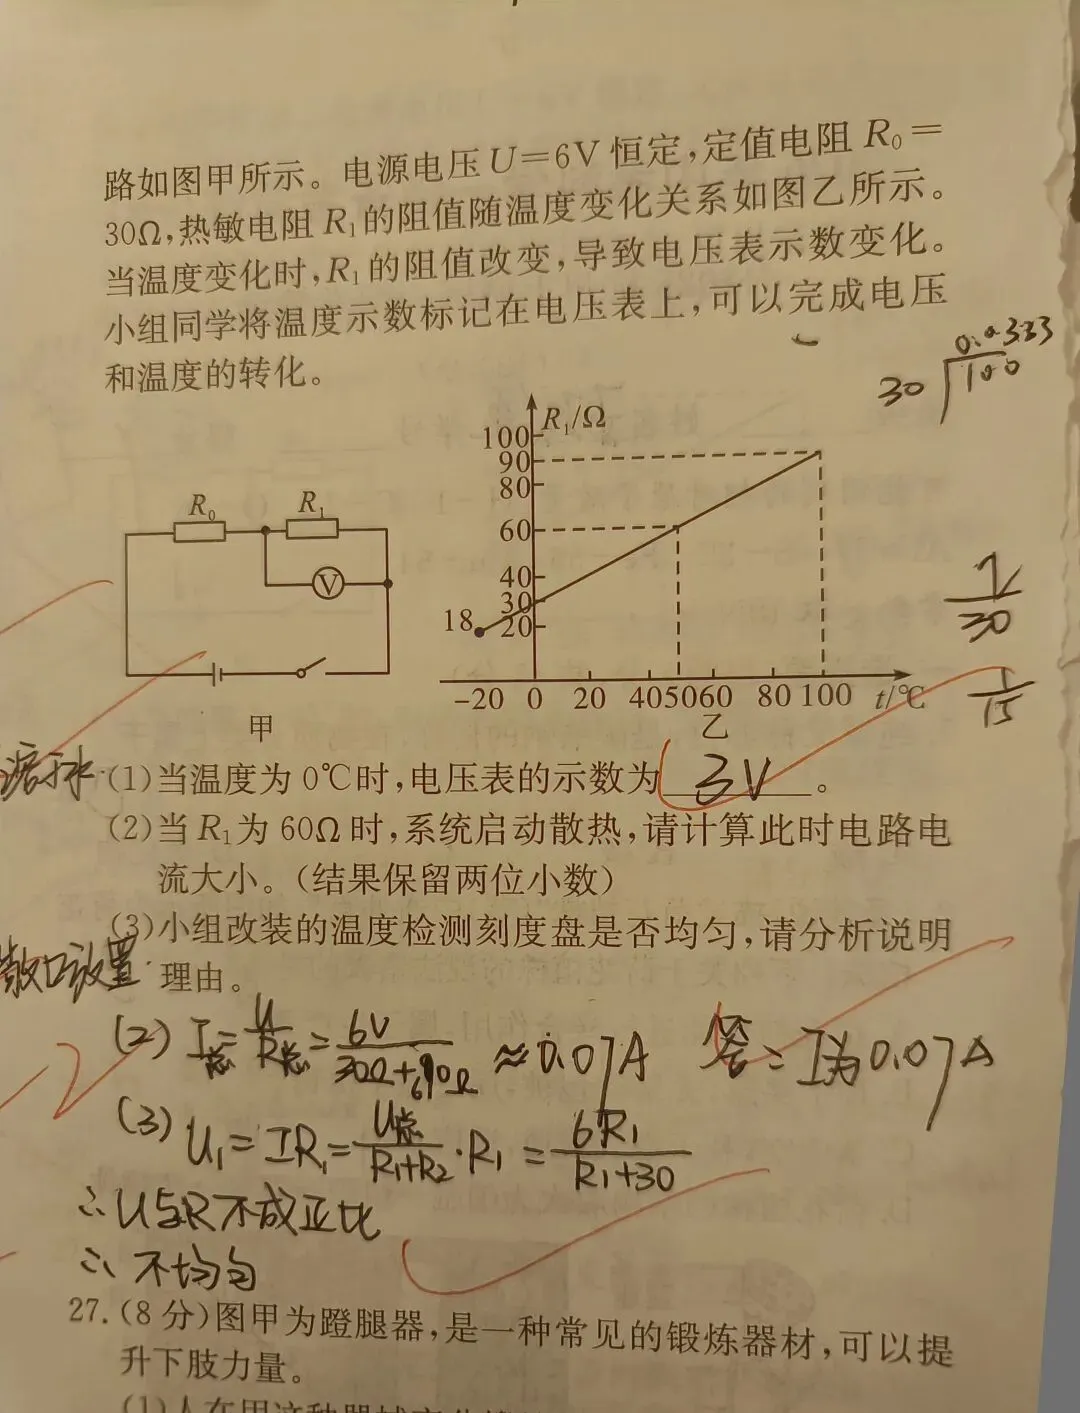 路如图甲所示。电源电压U=6V恒定,定值电阻R₀=
30Ω,热敏电阻R₁的阻值随温度变化关系如图乙所示。
当温度变化时,R₁的阻值改变,导致电压表示数变化。
小组同学将温度示数标记在电压表上,可以完成电压
和温度的转化。
0.0333
30 100
R₁/Ω
100
90
80
60
40
30
20
18
-20 0 20 40 50 60 80 100 t/℃
乙
R₀ R₁
V
甲
2/30
1/15
(1)当温度为0℃时,电压表的示数为 3V 。
(2)当R₁为60Ω时,系统启动散热,请计算此时电路电
流大小。(结果保留两位小数)
(3)小组改装的温度检测刻度盘是否均匀,请分析说明
理由。
设置
(2) I总=U/R总=6V/(30Ω+60Ω)≈0.07A 答:I为0.07A
(3) U₁=IR₁=U总/(R₁+R₂)·R₁=6R₁/(R₁+30)
∴U与R不成正比
∴不均匀
27.(8分)图甲为蹬腿器,是一种常见的锻炼器材,可以提
升下肢力量。